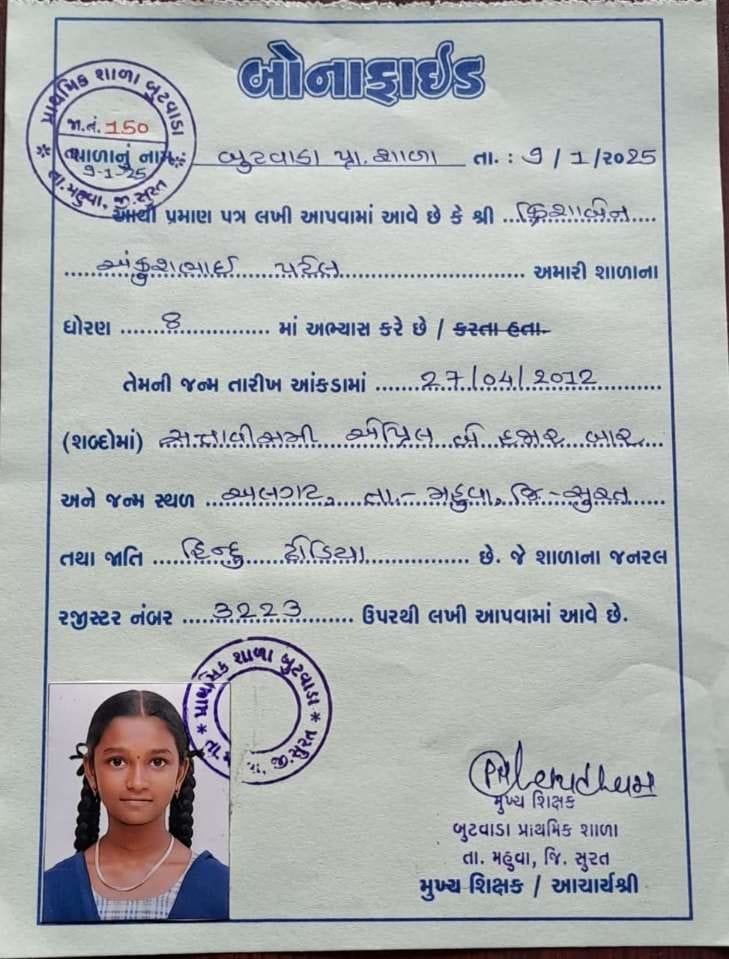 બોનાફાઇડ
પ્રાથમિક શાળા બુટવાડા
જા.નં. 150
તા.
9-1-25
તા. મહુવા, જી. સુરત
શાળાનું નામ બુટવાડા પ્રા. શાળા તા. : 9 / 1 /2025
આથી પ્રમાણ પત્ર લખી આપવામાં આવે છે કે શ્રી ક્રિશાબેન
અંકુશભાઈ પટેલ અમારી શાળાના
ધોરણ 8 માં અભ્યાસ કરે છે / કરતા હતા.
તેમની જન્મ તારીખ આંકડામાં 27/04/2012
(શબ્દોમાં) સત્તાવીસમી એપ્રિલ બે હજાર બાર
અને જન્મ સ્થળ અલગટ, તા.- મહુવા, જિ.- સુરત
તથા જાતિ હિન્દુ ઢોડિયા છે. જે શાળાના જનરલ
રજીસ્ટર નંબર 3223 ઉપરથી લખી આપવામાં આવે છે.
પ્રાથમિક શાળા બુટવાડા
જી. સુરત
મુખ્ય શિક્ષક
બુટવાડા પ્રાથમિક શાળા
તા. મહુવા, જિ. સુરત
મુખ્ય શિક્ષક / આચાર્યશ્રી